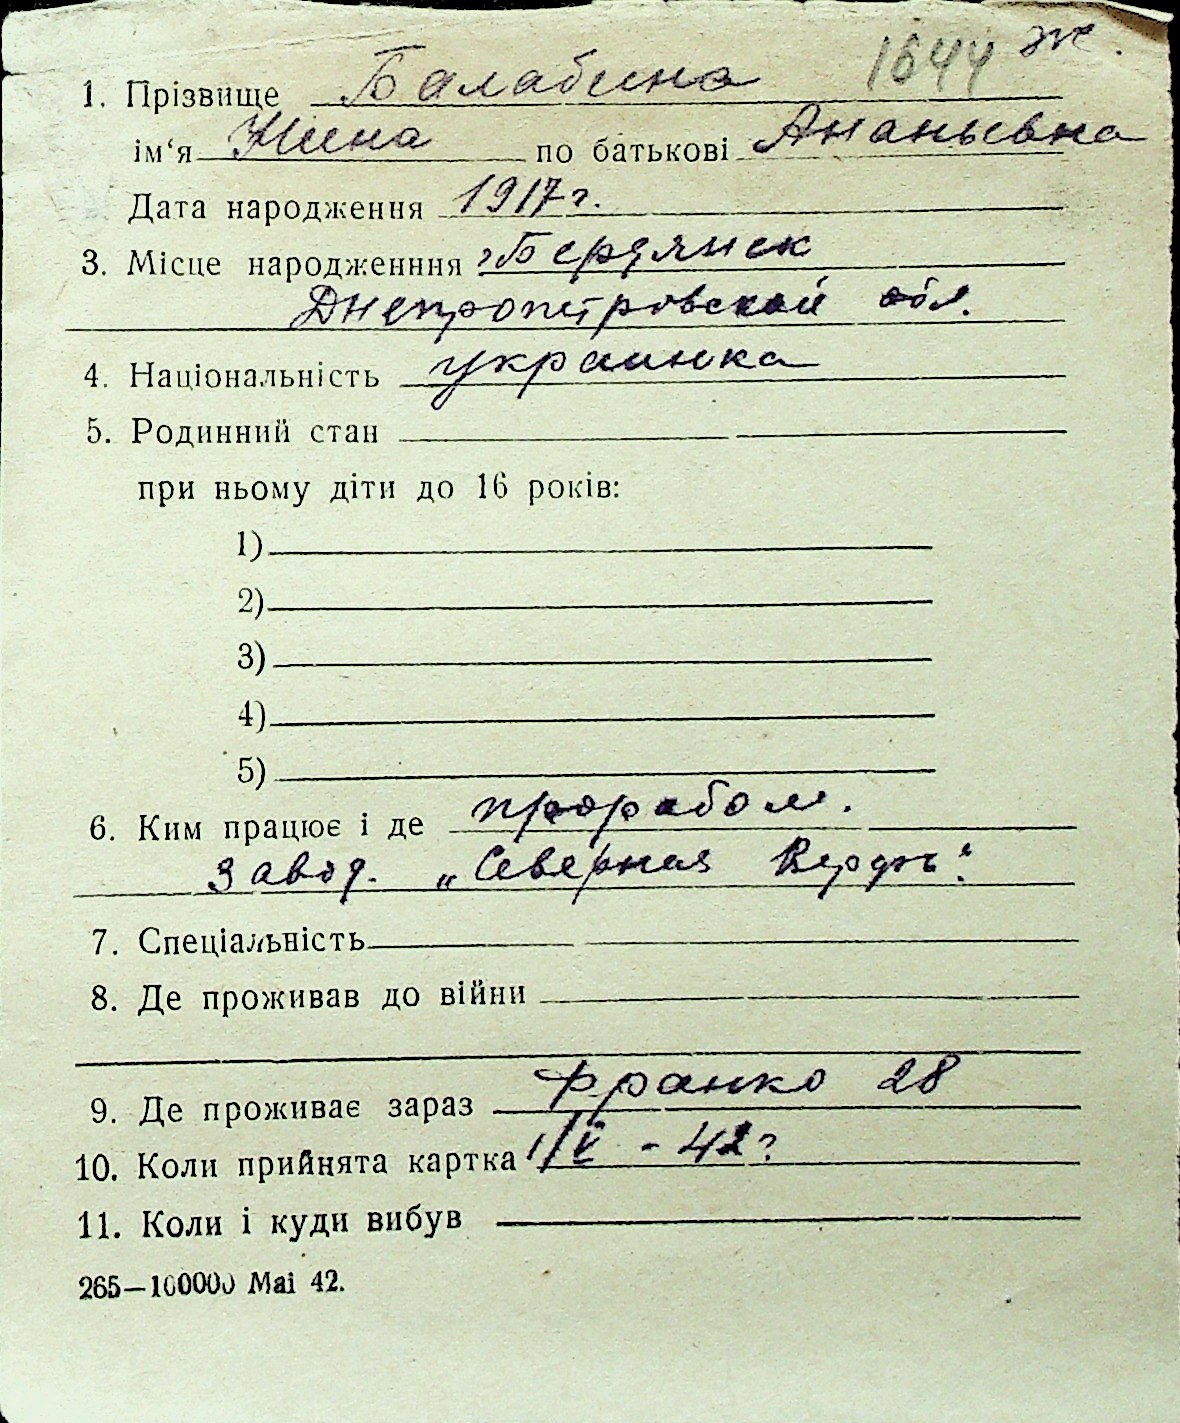 1644 ж.
1. Прізвище Балабина
ім‘я Нина по батькові Ананьевна
Дата народження 1917 г.
3. Місце народженння г. Бердянск
Днепропетровской обл.
4. Національність украинка
5. Родинний стан
при ньому діти до 16 років:
1)
2)
3)
4)
5)
6. Ким працює і де прорабом.
завод. „Северная
7. Спеціальність
8. Де проживав до війни
9. Де проживає зараз Франко 28
10. Коли прийнята картка 1/V - 42 г
11. Коли і куди вибув
265—100000 Mai 42.